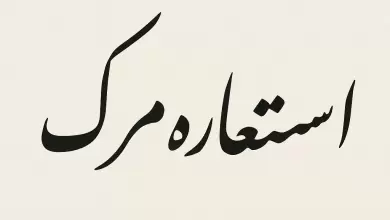 استعاره مرک